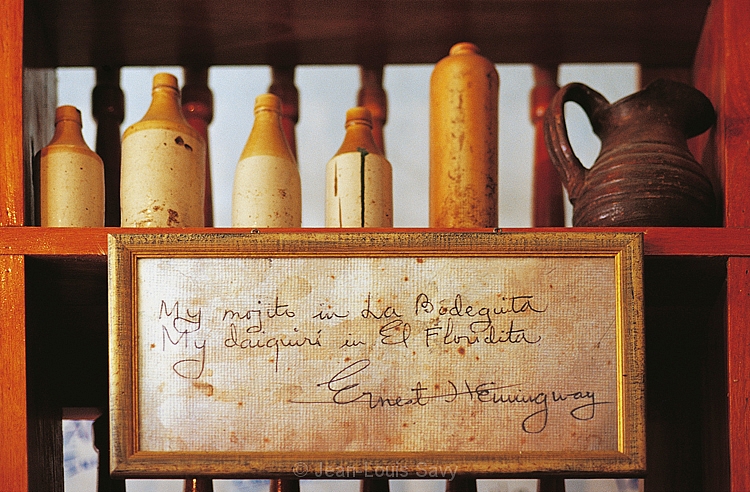 My mojito in La Bodeguita
My daiquirí in El Floridita
Ernest Hemingway
© Jean-Louis Savy